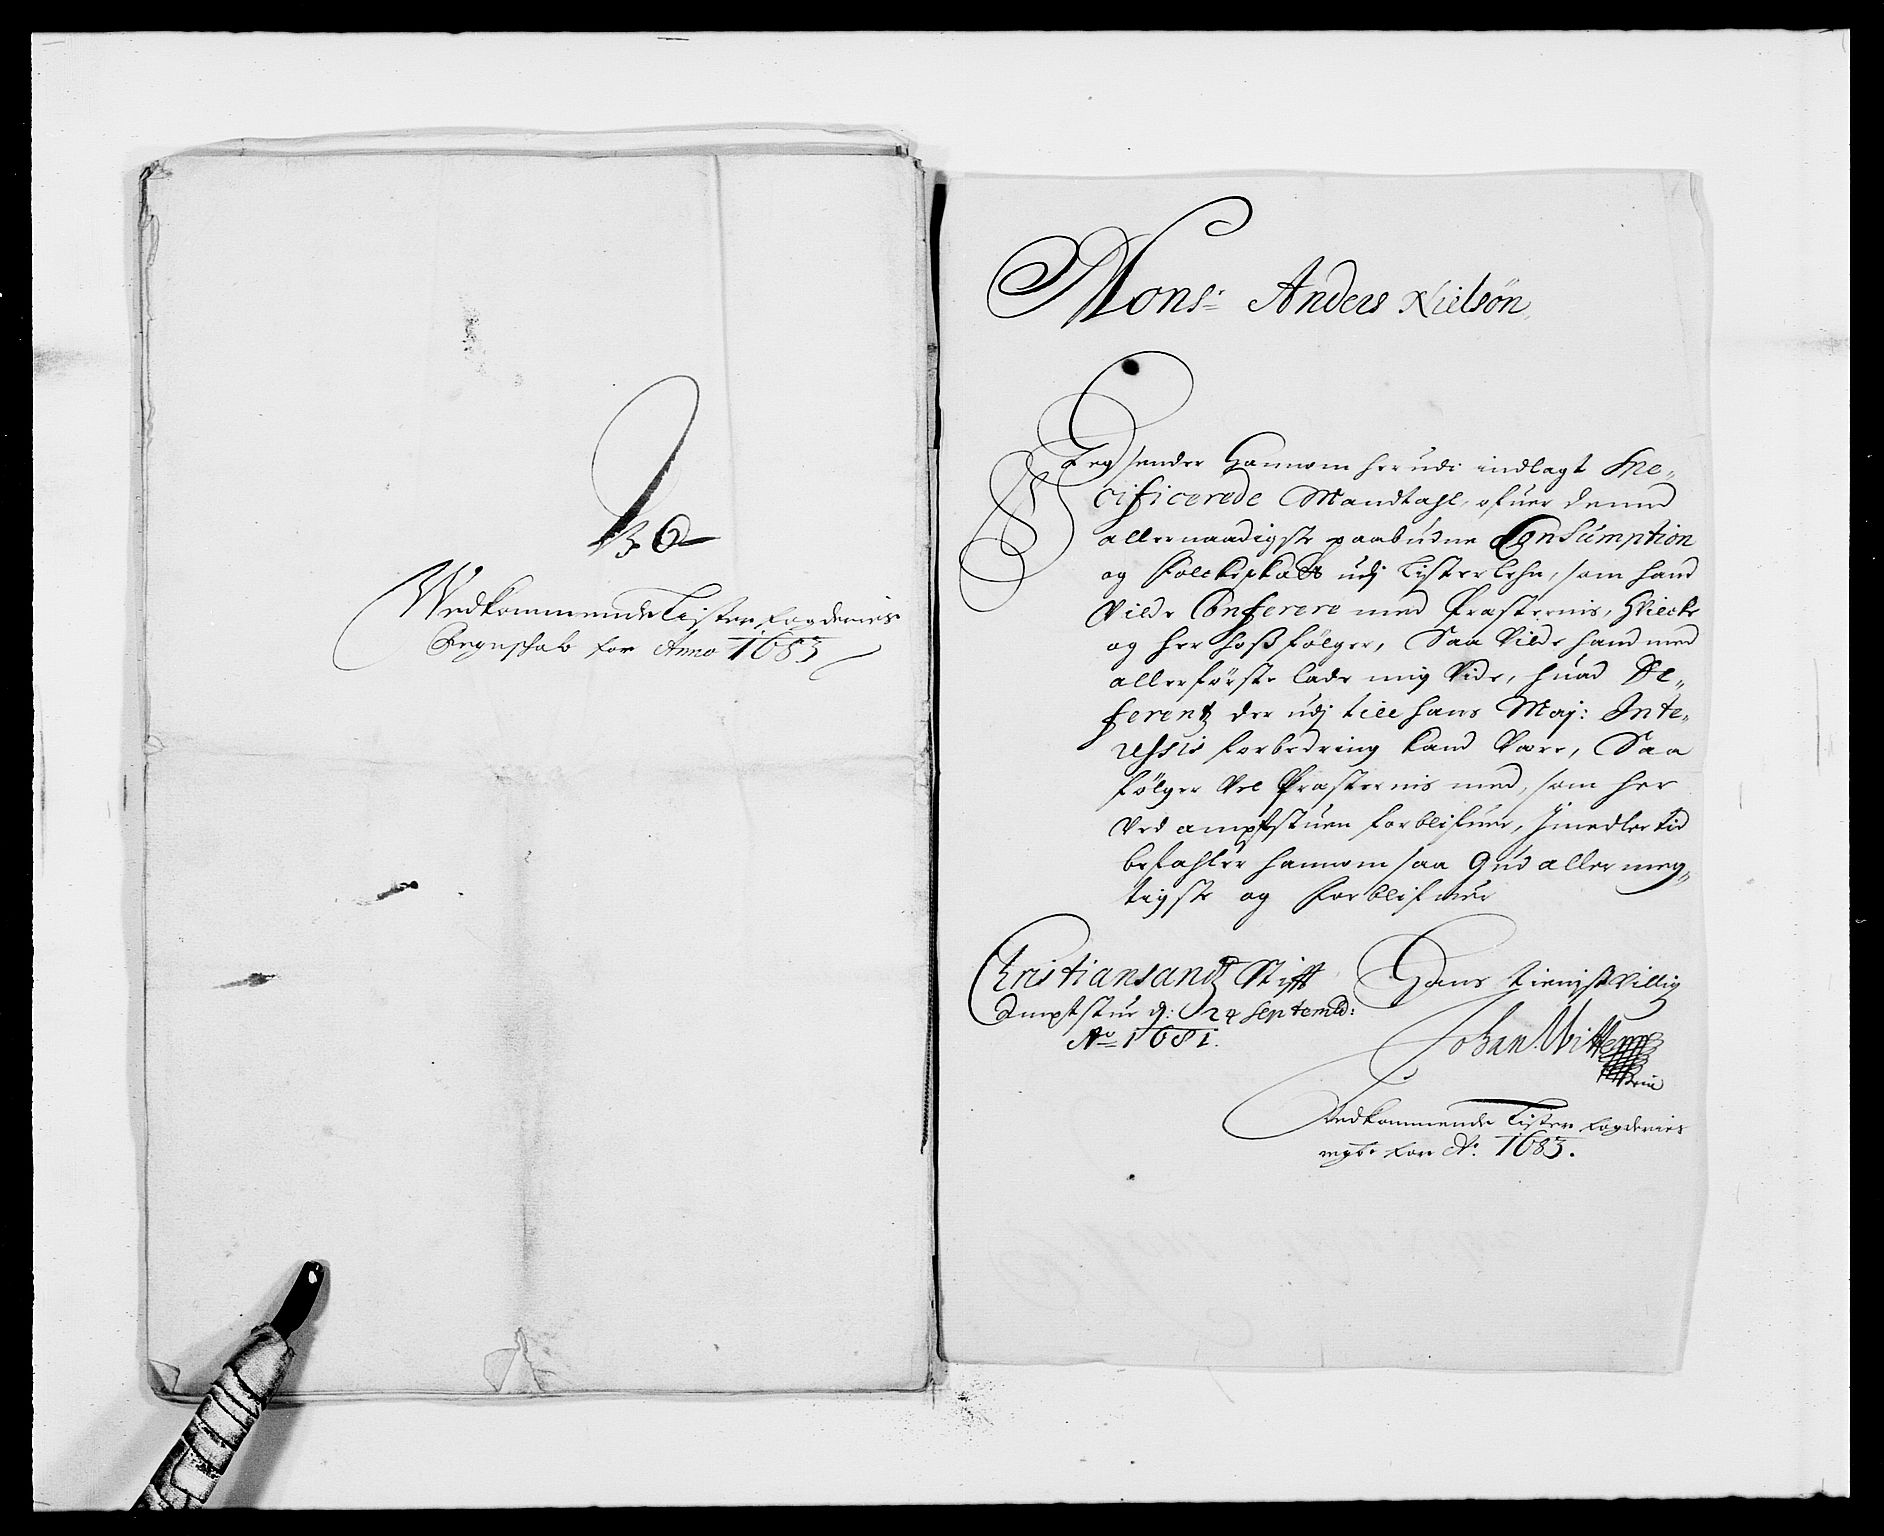 No 36
Wedkommende Lister fogderies
Regnskab for Anno 1683
Monsr: Anders Nielsøn
Jeg sender Hannom herudi indlagt Spe-
cificerede Mandtahl, ofuer denne
allernaadigste paabudne Consumption
og folckeskatt udj Listerlehn, som hand
Vilde Conferere med Præsternis, hvilcke
og her hoß følger, Saa Vilde hand med
allerførste lade mig Vide, huad De-
ferentz der udj till hans Maj: Inte-
ressis forbedring kand Være, Saa
følger Vel Præsternis med, som her
Ved ampstuen forblifuer, Jmedlertid
befahler hannom saa Gud allermeg-
tigste og forblifuer
Christiansandz Stifft
Ampstue d: 24 Septemb:
Ao 1681.
Hans tienistvillig
Johan Wittem
Vedkommende Lister fogderies
regsk: for Ao: 1683.